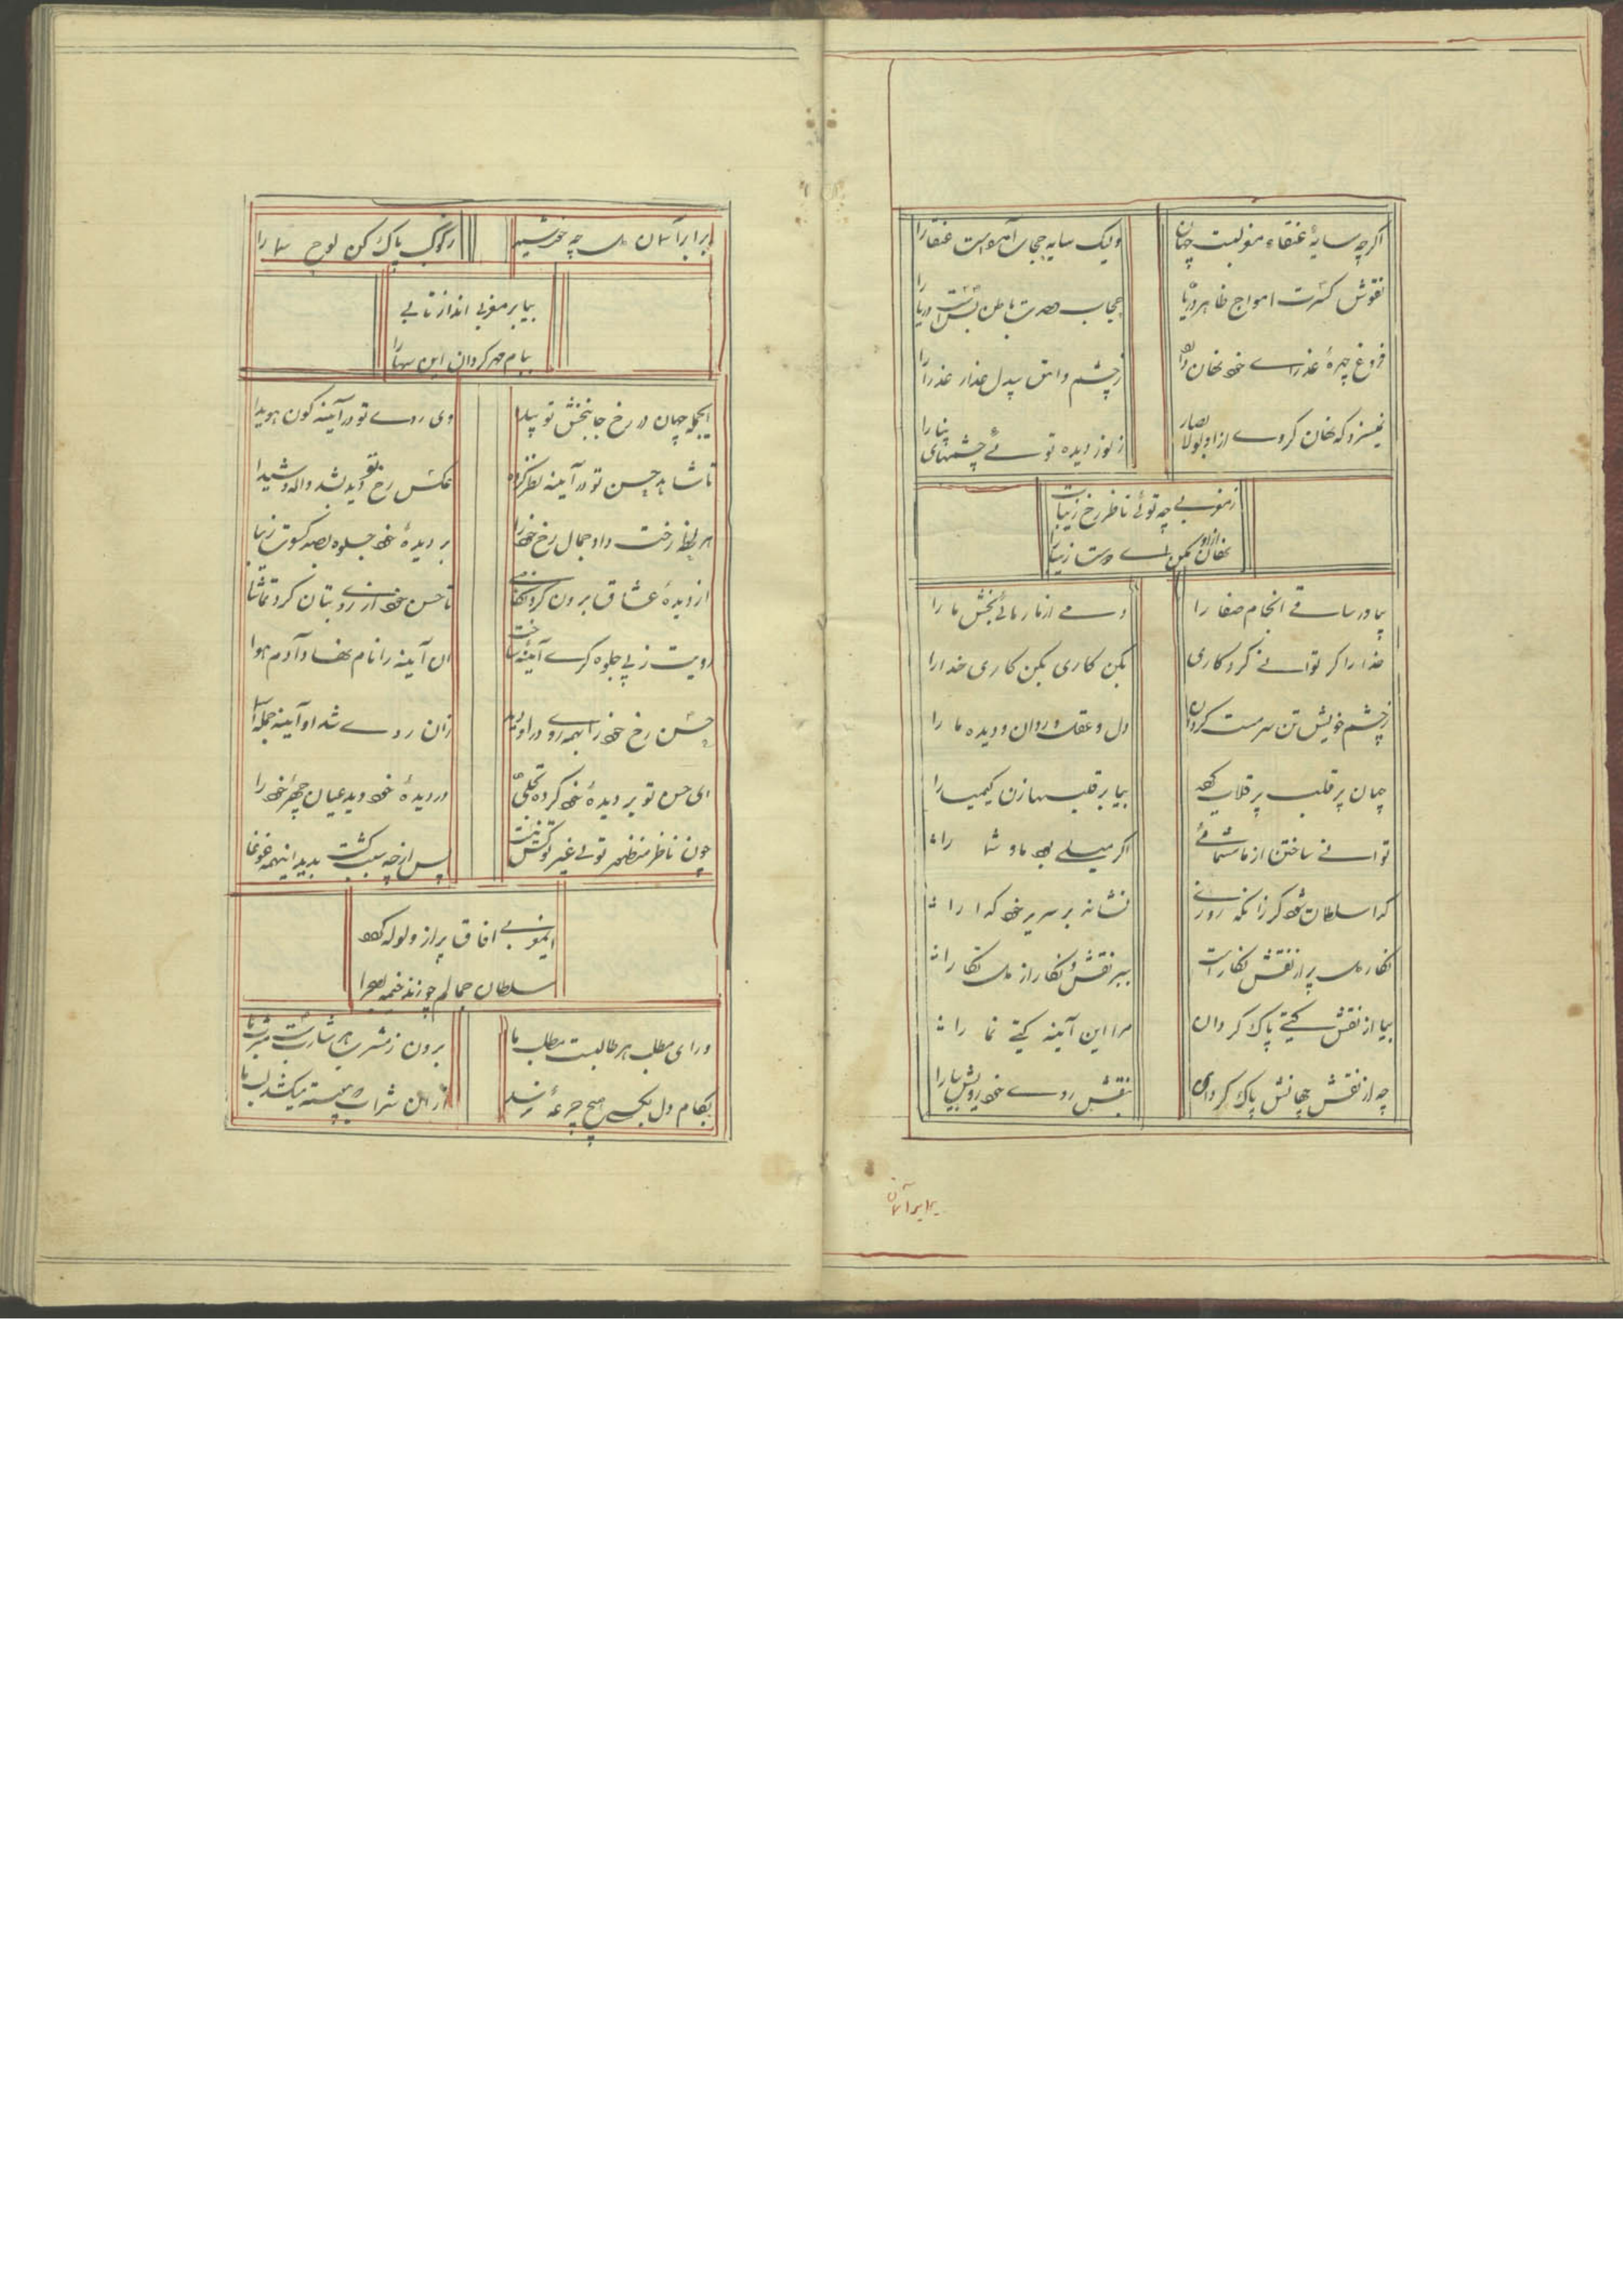 اگرچه سایهٔ عنقاء مغربیست جهان
ولیک سایه حجاب آمده است عنقا را
نقوش کثرت امواج ظاهر دریا
حجاب وحدت باطن بس است دریا را
فروغ چهرهٔ عذرا خود نهان
ز چشم وامق بیدل عذار عذرا را
نمیسزد که نهان کردی از اولوالابصار
ز نور دیدهٔ توئی چشمهای بینا را
ز مغربی چه توئی ناظر رخ زیبات
نهان ازو مکن ای دوست زیبا را
بیاور ساقی آنجام صفا را
دمی از ما رهائی بخش ما را
خدا را گر توانی کرد کاری
بکن کاری بکن کاری خدا را
ز چشم خویشتن سرمست گردان
دل و عقل و روان و دیده ما را
جهان پر قلب پر قلاب
بیا بر قلبها زن کیمیا را
توانی ساختن از ما شمائی
اگر میلی بود ما و شما را
گدا سلطان شود گر زانکه روزی
نشاند بر سریر خود گدا را
نگار دل پر از نقش نگار است
ببر نقش و نگار از دل نگارا
بیا از نقش گیتی پاک گردان
مرا این آینه گیتی نما را
چه از نقش جهانش پاک کردی
بنقش روی خود رویش بیارا
برابر آسمان
برابر آسمان دل چه خورشید
ز کوکب پاک کن لوح سما را
بیا بر مغربی انداز تابی
بیام مهر گردان این سها را
ایجمله جهان در رخ جانبخش تو پیدا
وی روی تو در آینه کون هویدا
تا شاهد حسن تو در آینه نظر کرد
عکس رخ خود دید بشد واله و شیدا
هر لحظه رخت داد جمال رخ خود را
بر دیدهٔ خود جلوه بصد کسوت زیبا
از دیدهٔ عشاق برون کرد نگاهی
تا حسن خود از روی بتان کرد تماشا
رویت ز پی جلوه گری آینه ساخت
آن آینه را نام نهاد آدم و حوا
حسن رخ خود را بهمه روی در او دید
زان روی شد او آینه جمله اسما
ای حسن تو بر دیدهٔ خود کرده تجلی
در دیدهٔ خود دید عیان چهرهٔ خود را
چون ناظر و منظور توئی غیر تو کس نیست
پس از چه سبب گشت پدید اینهمه غوغا
ایمغربی آفاق پر از ولوله گردد
سلطان جمالم چو زند خیمه بصحرا
ورای مطلب هر طالبست مطلب ما
برون ز مشرب هر شاربست مشرب ما
بکام دل بکسی هیچ جرعهٔ نرسید
از آن شراب که پیوسته میکشد لب ما